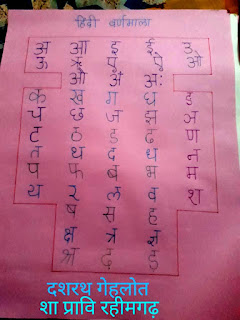 हिंदी वर्णमाला
अ आ इ ई उ
ऊ ऋ ए ऐ ओ
औ अं अः
क ख ग घ ङ
च छ ज झ ञ
ट ठ ड ढ ण
त थ द ध न
प फ ब भ म
य र ल व श
ष स ह
क्ष त्र ज्ञ
श्र ढ़ ड़
दशरथ गेहलोत
शा प्रावि रहीमगढ़